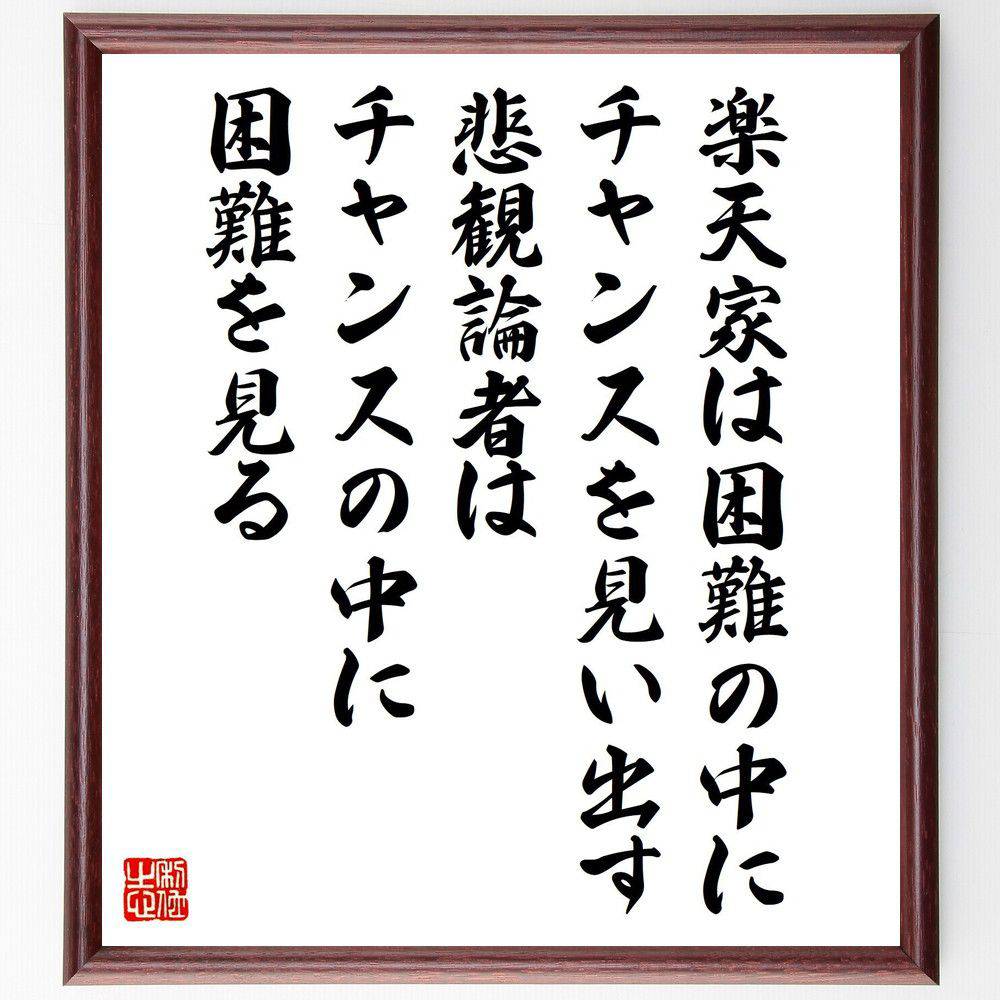 楽天家は困難の中に
チャンスを見い出す
悲観論者は
チャンスの中に
困難を見る